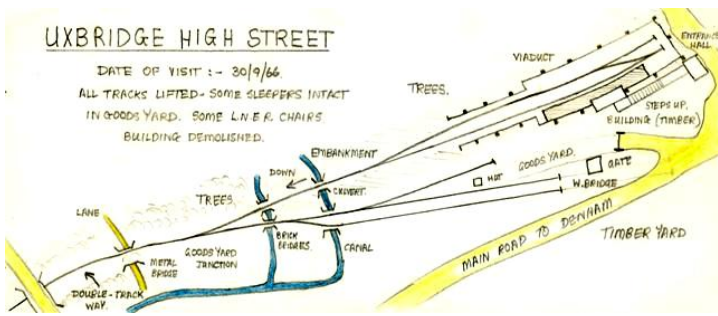 UXBRIDGE HIGH STREET
DATE OF VISIT :- 30/9/66.
ALL TRACKS LIFTED - SOME SLEEPERS INTACT
IN GOODS YARD. SOME L.N.E.R. CHAIRS
BUILDING DEMOLISHED.
VIADUCT
ENTRANCE
HALL
TREES.
STEPS UP.
BUILDING (TIMBER)
EMBANKMENT
DOWN
GOODS YARD.
GATE
HUT
W.BRIDGE
CULVERT.
TREES.
LANE
BRICK
BRIDGES.
CANAL
GOODS YARD
JUNCTION
METAL
BRIDGE
DOUBLE-TRACK
WAY.
MAIN ROAD TO DENHAM
TIMBER YARD